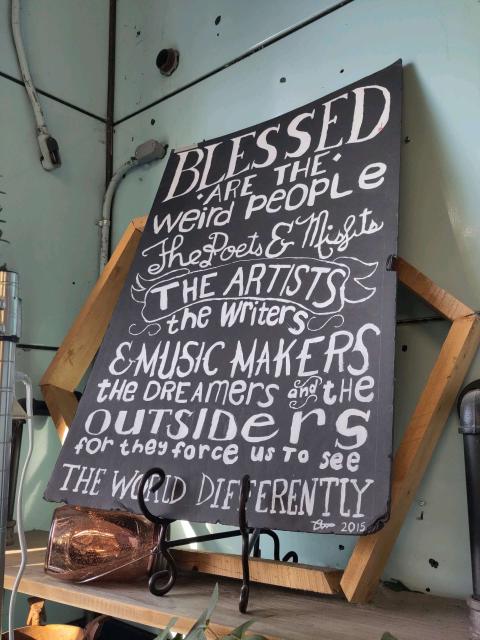 BLESSED
·ARE THE·
weird people
The Poets & Misfits
THE ARTISTS
the writers
& MUSIC MAKERS
THE DREAMERS and THE
OUTSIDERS
for they force us to see
THE WORLD DIFFERENTLY
2015